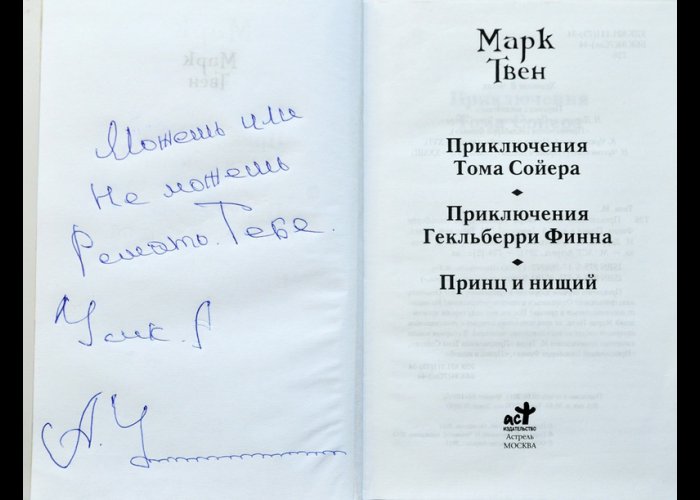 Можешь или
не можешь
Решать. Тебе.
Усик. А
А. У
Марк
Твен
Приключения
Тома Сойера
Приключения
Гекльберри Финна
Принц и нищий
аст
ИЗДАТЕЛЬСТВО
Астрель
МОСКВА